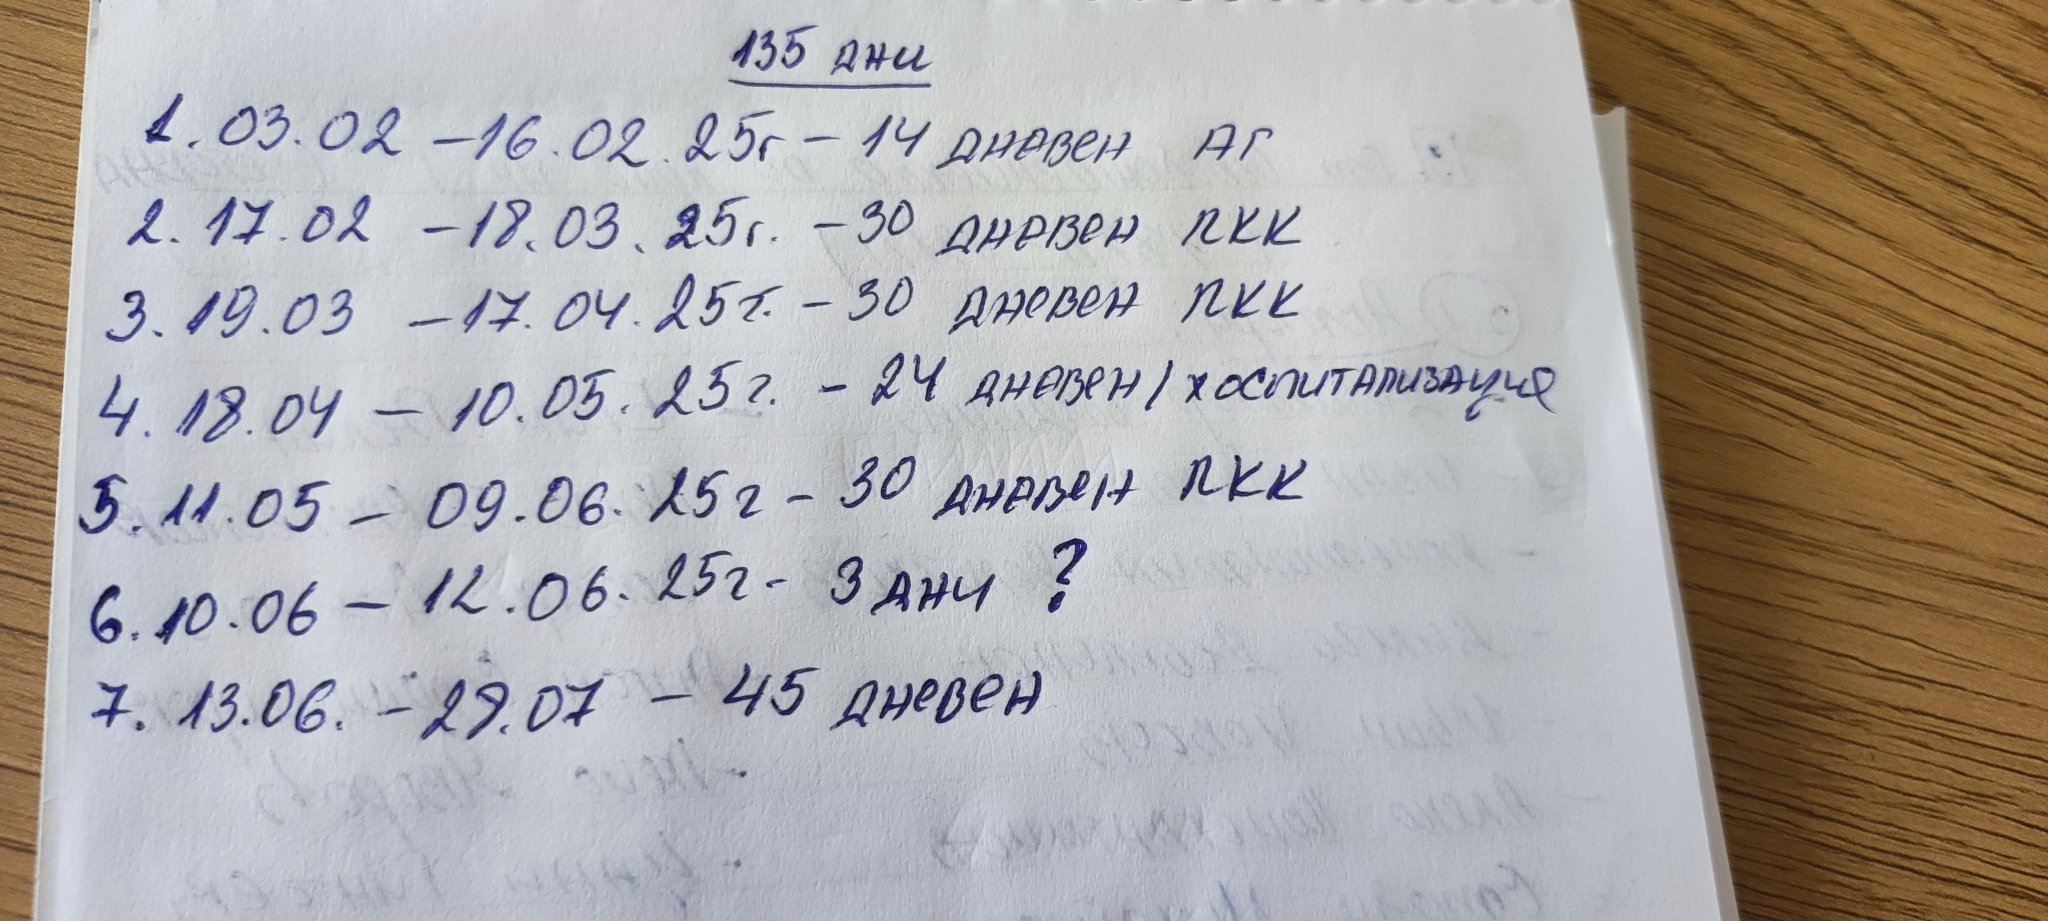 135 дни
1. 03.02 – 16.02.25г – 14 дневен АГ
2. 17.02 – 18.03.25г. – 30 дневен ЛКК
3. 19.03 – 17.04.25г. – 30 дневен ЛКК
4. 18.04 – 10.05.25г. – 24 дневен / хоспитализация
5. 11.05 – 09.06.25г – 30 дневен ЛКК
6. 10.06 – 12.06.25г – 3 дни ?
7. 13.06. – 28.07 – 45 дневен